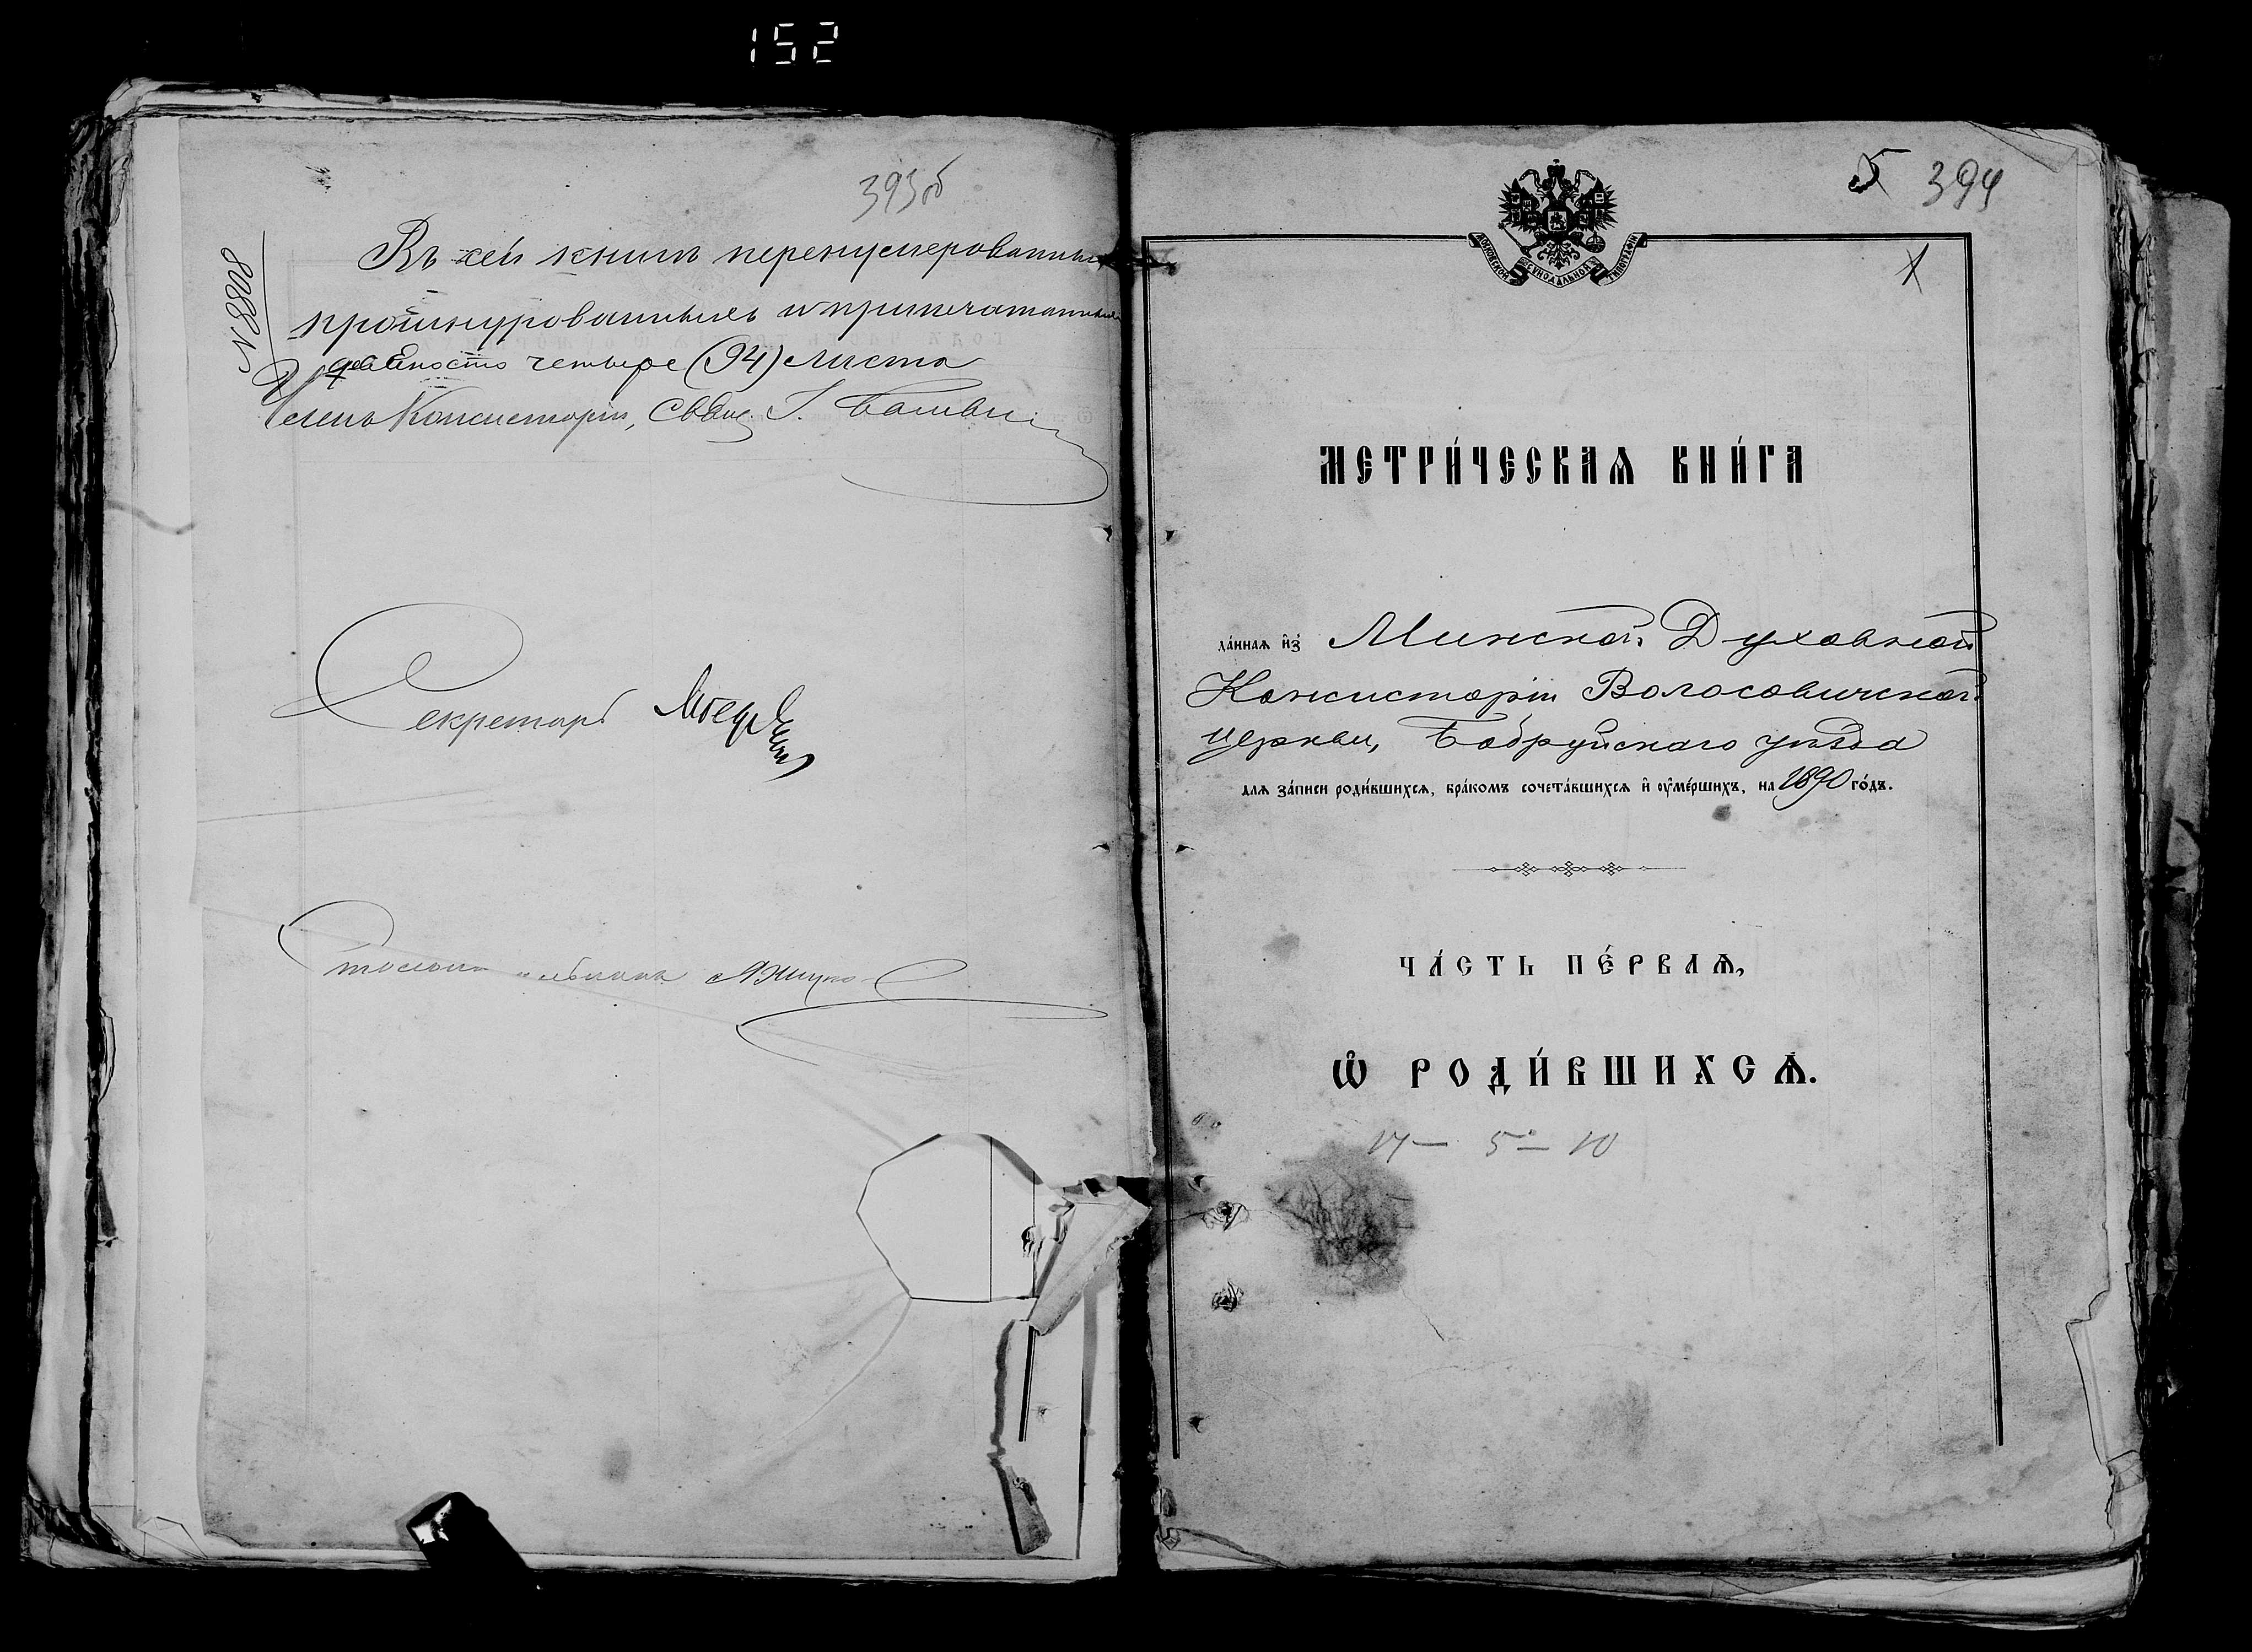 152
393об
№ 8808
Въ сей книгѣ перенумерованныхъ
прошнурованныхъ и припечатанныхъ
девяносто четыре (94) листа
Членъ Консисторіи, Свящ. І.
Секретарь
394
МОСКОВСКОЙ СѴНОДАЛЬНОЙ ТИПОГРАФІИ
X
МЕТРИ́ЧЕСКАѦ КНИ́ГА
да́ннаѧ и҆з̾ Минской Духовной
Консисторіи Волосовичской
церкви, Бобруйскаго уѣзда
длѧ за́писи роди́вшихсѧ, бра́комъ сочета́вшихсѧ и҆ ᲂу҆ме́ршихъ, на 1890 го́дъ.
ЧА́СТЬ ПЕ́РВАѦ,
Ѡ҆ РОДИ́ВШИХСѦ.
17 — 5 — 10